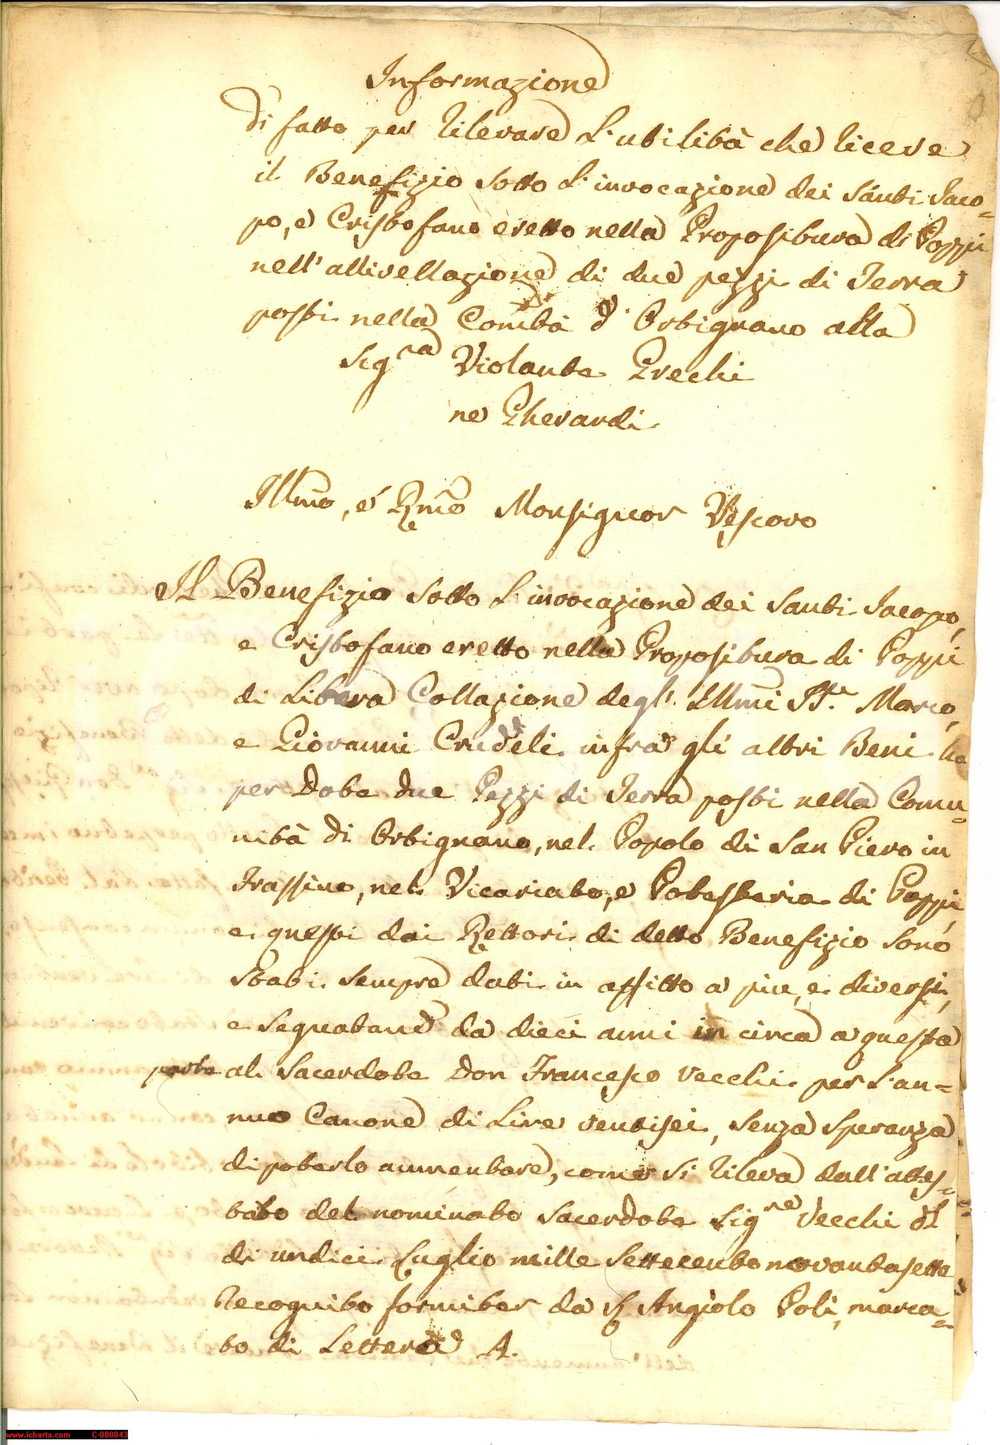 Informazione
di fatto per rilevare l'utilità che riceve
il Benefizio sotto l'invocazione dei Santi Jaco=
po, e Cristofano eretto nella Propositura di Poppi
nell'allivellazione di due pezzi di Terra
posti nella Comtà d'Ortignano alla
Sigra Violante Grechi
ne Gherardi.
Illmo, e Rmo Monsignor Vescovo
Il Benefizio sotto l'invocazione dei Santi Jacopo,
e Cristofano eretto nella Propositura di Poppi
di Libera Collazione degl'Illmi SSri Marco,
e Giovanni Crudeli infra gli altri Beni ha
per Dote due Pezzi di Terra posti nella Comu=
nità di Ortignano, nel Popolo di San Piero in
Frassino, nel Vicariato, e Potesteria di Poppi
e questi dai Rettori di detto Benefizio sono
stati sempre dati in affitto a più, e diversi,
e segnatamte da dieci anni in circa a questa
parte al Sacerdote Don Francesco Vecchi per l'an=
nuo Canone di Lire ventisei, senza speranza
di poterlo aumentare, come si rileva dall'attes=
tato del nominato Sacerdote Sigre Vecchi del
di undici Luglio mille settecento novantasette
Recognito formiter da Angiolo Poli, marca=
to di Lettera A.
www.icharta.com C-080043